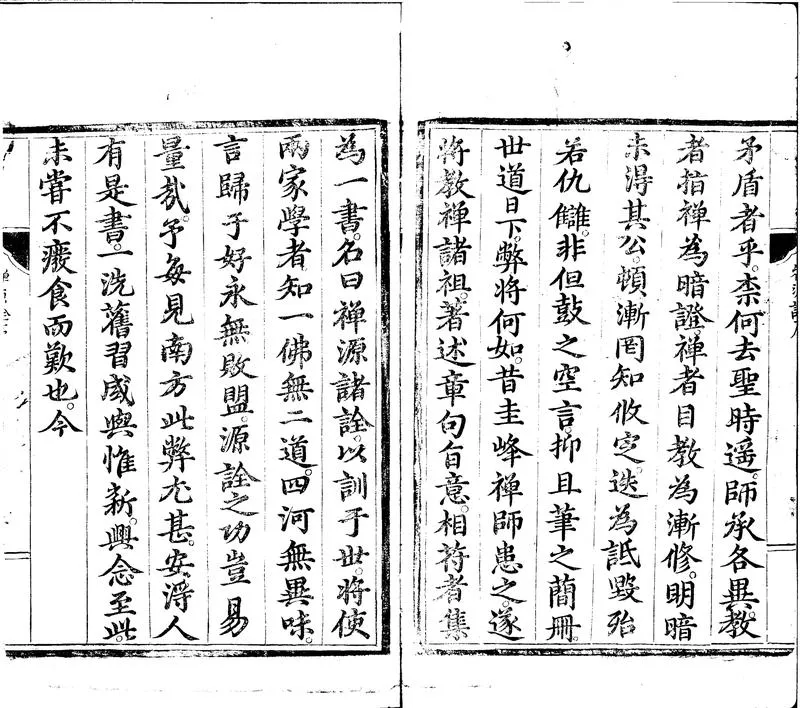 矛盾者乎。柰何去聖時遥。師承各異。教
者指禅為暗證。禅者目教為漸修。明暗
未淂其公。頓漸罔知攸定。迭為詆毀殆
若仇讎。非但鼓之空言。抑且筆之蕳冊。
世道日下。弊将何如。昔圭峰禅師患之。遂
将教禅諸祖。著述章句。旨意相符者。集
為一書。名曰禅源諸詮。以訓于世。将使
兩家學者。知一佛無二道。四河無異味。
言歸于好。永無敗盟。源詮之功豈易
量㢤。予每見南方此弊尤甚。安淂人
有是書。一洗舊習咸與惟新。興念至此。
未甞不癈食而歎也。今